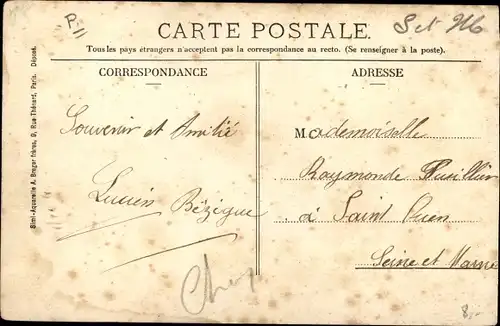 P-11
CARTE POSTALE.
S et M
Tous les pays étrangers n'acceptent pas la correspondance au recto. (Se renseigner à la poste).
CORRESPONDANCE
ADRESSE
Souvenir et Amitié
Lucien Bézègue
Mademoiselle
Raymonde
à Saint Ouen
Seine et Marne
Simi-Aquarelle A. Breger frères, 9, Rue Thénard, Paris. Déposé.
8,-